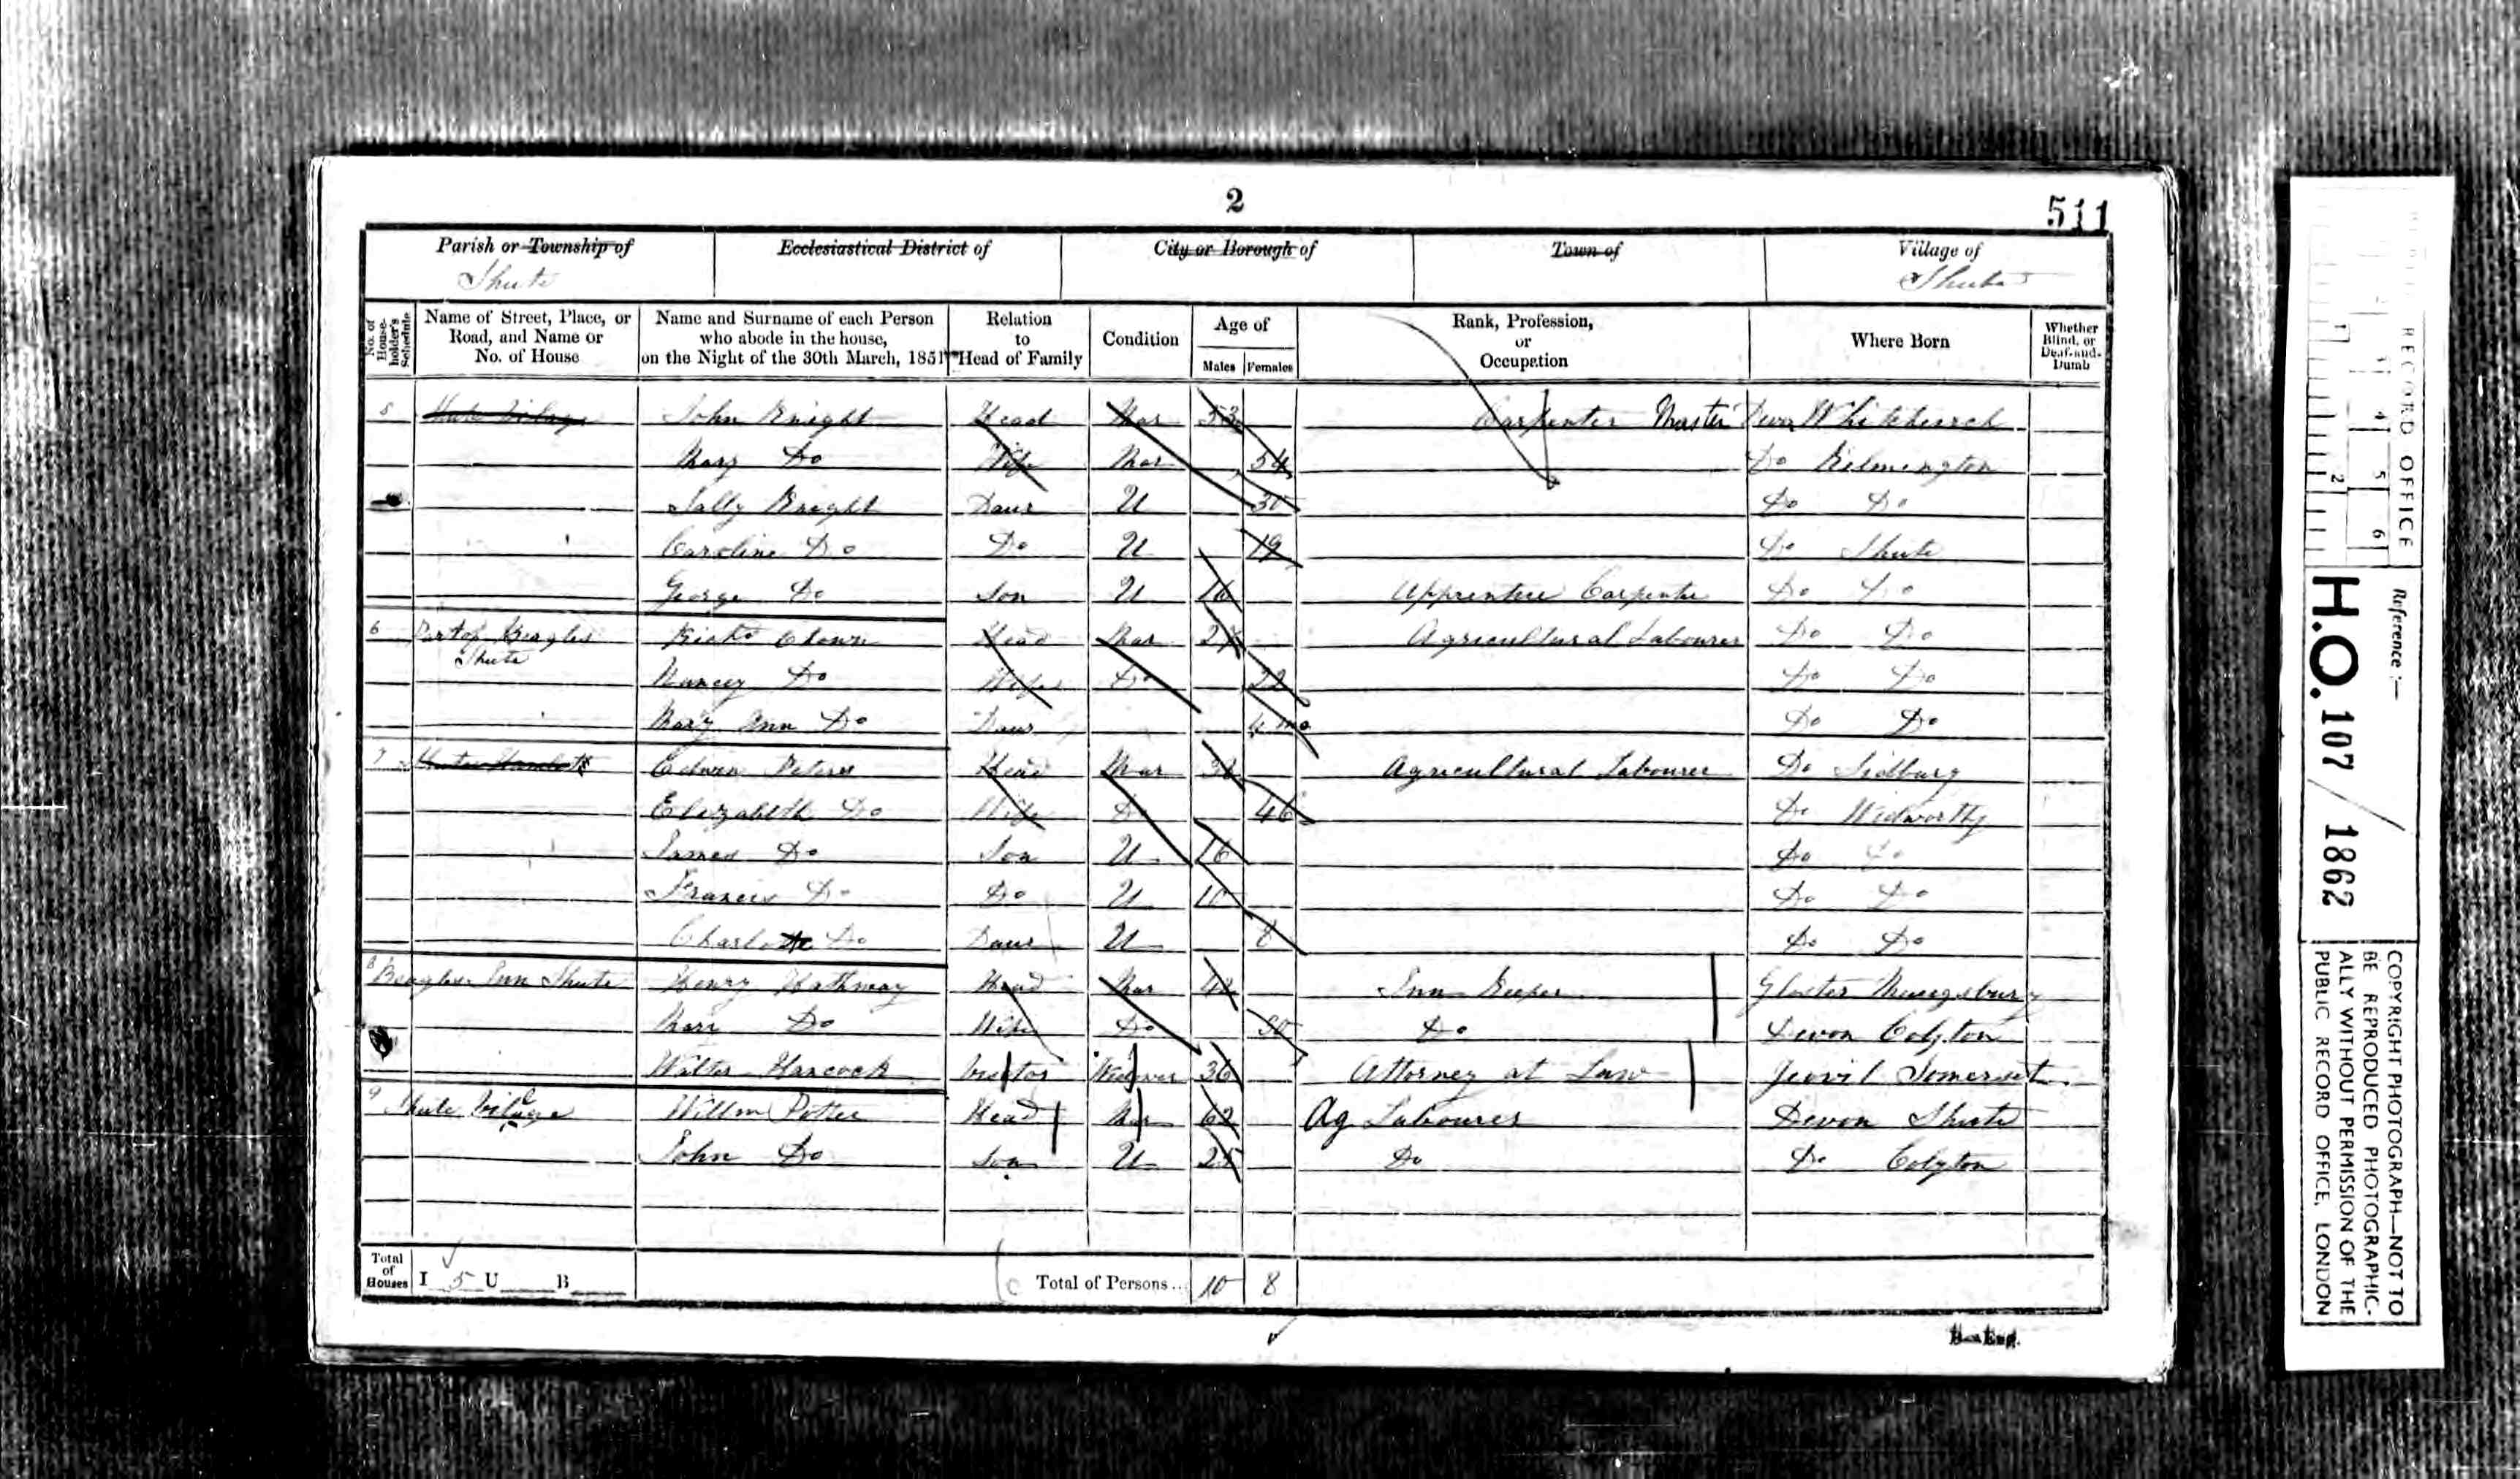 2
511
Parish or Township of
Ecclesiastical District of
City or Borough of
Town of
Village of
Shute
Shute
No. of House-holder's Schedule
Name of Street, Place, or Road, and Name or No. of House
Name and Surname of each Person who abode in the house, on the Night of the 30th March, 1851
Relation to Head of Family
Condition
Age of
Males
Females
Rank, Profession, or Occupation
Where Born
Whether Blind, or Deaf-and-Dumb
5 Shute Village John Knight Head Mar 53 Carpenter Master Devon Whitchurch
Mary Do Wife Mar 54 Do Kilmington
Sally Knight Daur U 30 Do Do
Caroline Do Do U 19 Do Shute
George Do Son U 16 Apprentice Carpenter Do Do
6 Part of Beagles Shute Richd Clown Head Mar Agricultural Labourer Do Do
Nancey Do Wife Do 22 Do Do
Mary Ann Do Daur mo Do Do
7 Edwin Peters Head Mar Agricultural Labourer Do Sidbury
Elizabeth Do Wife Do 46 Do Widworthy
James Do Son U 16 Do Do
Francis Do Do U 10 Do Do
Charlotte Do Daur U 8 Do Do
8 Beagles Inn Shute Henry Hathway Head Mar 42 Inn Keeper Gloster
Mary Do Wife Do 50 Do Devon Colyton
Walter Hancock Visitor Widower 36 Attorney at Law Yeovil Somerset
9 Shute Village Willm Potter Head Mar 62 Ag Labourer Devon Shute
John Do Son U 25 Do Do Colyton
Total of Houses I 5 U B
Total of Persons... 10 8
RECORD OFFICE
1 2
4 5 6
Reference:—
H.O. 107 / 1862
COPYRIGHT PHOTOGRAPH—NOT TO
BE REPRODUCED PHOTOGRAPHIC-
ALLY WITHOUT PERMISSION OF THE
PUBLIC RECORD OFFICE, LONDON